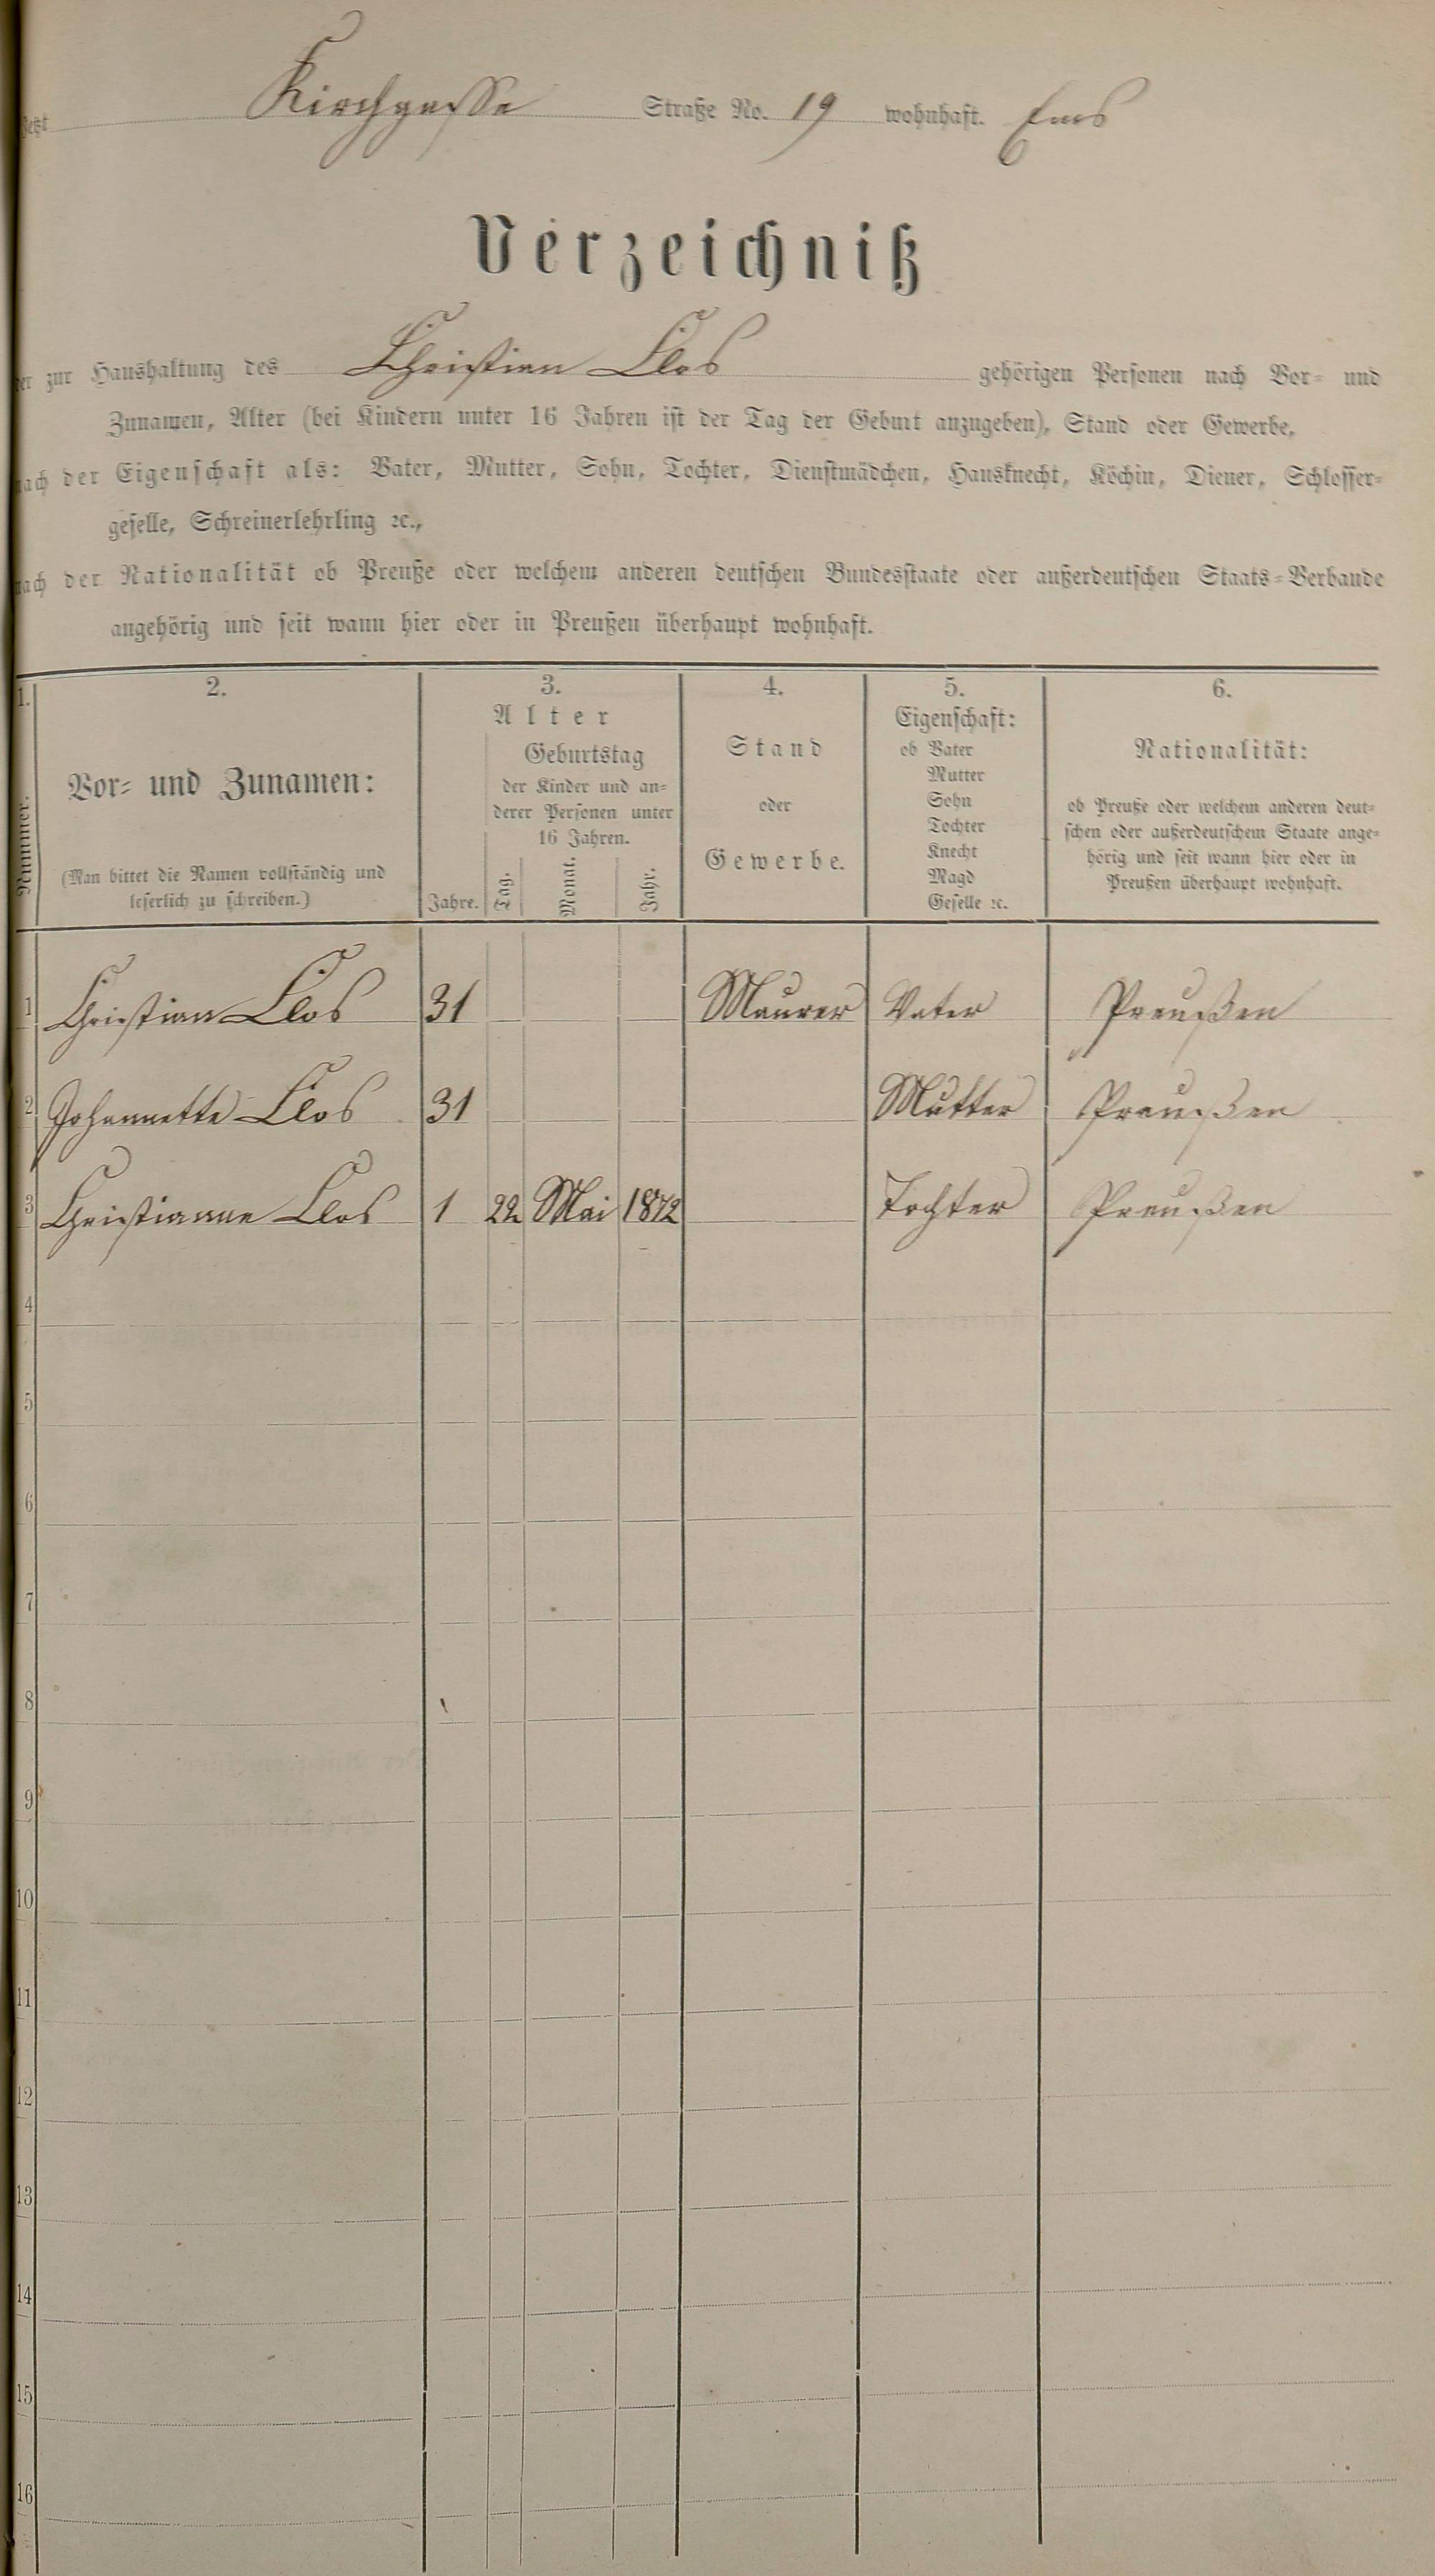 Jetzt Kirchgasse Straße No. 19 wohnhaft. Ems
Verzeichniß
der zur Haushaltung des Christian Clos gehörigen Personen nach Vor= und
Zunamen, Alter (bei Kindern unter 16 Jahren ist der Tag der Geburt anzugeben), Stand oder Gewerbe,
nach der Eigenschaft als: Vater, Mutter, Sohn, Tochter, Dienstmädchen, Hausknecht, Köchin, Diener, Schlosser=
geselle, Schreinerlehrling ꝛc.,
nach der Nationalität ob Preuße oder welchem anderen deutschen Bundesstaate oder außerdeutschen Staats=Verbande
angehörig und seit wann hier oder in Preußen überhaupt wohnhaft.
1.
Nummer.
2.
Vor= und Zunamen:
(Man bittet die Namen vollständig und
leserlich zu schreiben.)
3.
Alter
Geburtstag
der Kinder und an=
derer Personen unter
16 Jahren.
Jahre. Tag. Monat. Jahr.
4.
Stand
oder
Gewerbe.
5.
Eigenschaft:
ob Vater
Mutter
Sohn
Tochter
Knecht
Magd
Geselle ꝛc.
6.
Nationalität:
ob Preuße oder welchem anderen deut=
schen oder außerdeutschem Staate ange=
hörig und seit wann hier oder in
Preußen überhaupt wohnhaft.
1 Christian Clos 31 Maurer Vater Preußen
2 Johannette Clos 31 Mutter Preußen
3 Christianne Clos 1 22 Mai 1872 Tochter Preußen
4
5
6
7
8
9
10
11
12
13
14
15
16